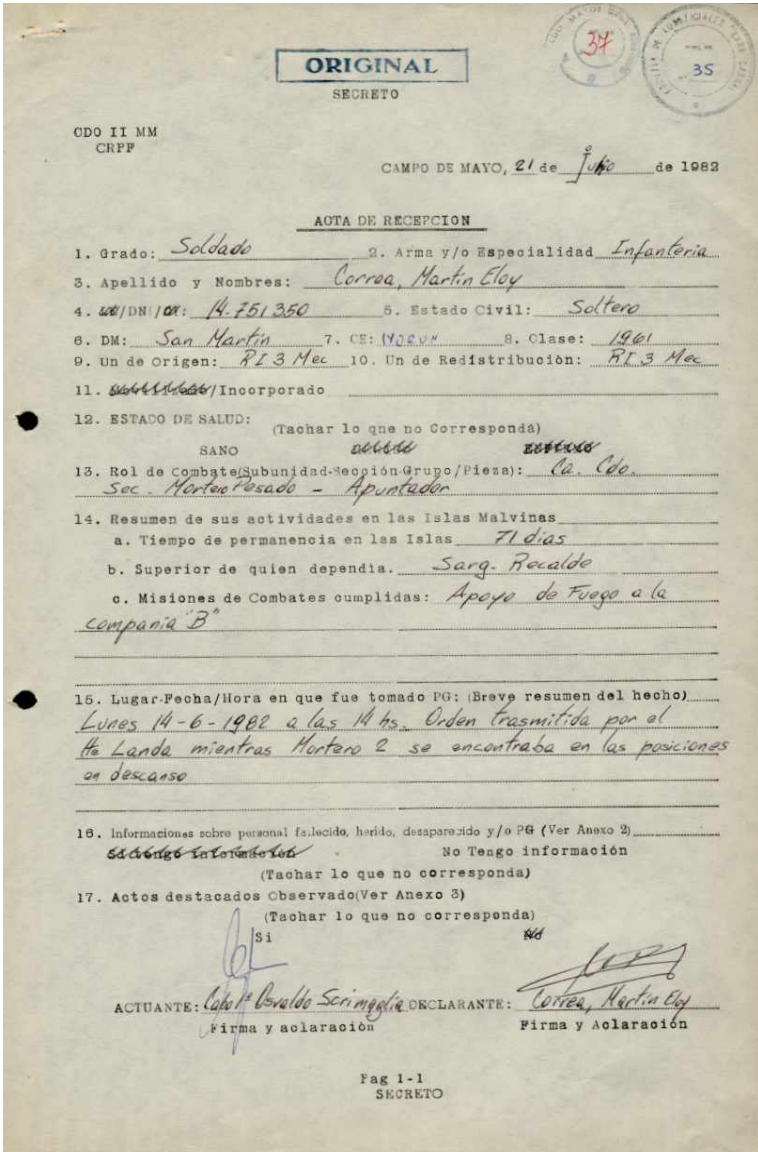 37
35
ORIGINAL
SECRETO
CDO II MM
CRPF
CAMPO DE MAYO, 21 de Julio de 1982
ACTA DE RECEPCION
1. Grado: Soldado 2. Arma y/o Especialidad Infanteria
3. Apellido y Nombres: Correa, Martin Eloy
4. /DNI/ : 14.751.350 5. Estado Civil: Soltero
6. DM: San Martín 7. CE: 8. Clase: 1961
9. Un de Origen: RI 3 Mec 10. Un de Redistribución: RI 3 Mec
11. /Incorporado
12. ESTADO DE SALUD:
(Tachar lo que no Corresponda)
SANO
13. Rol de Combate(Subunidad-Sección-Grupo/Pieza): Ca. Cdo.
Sec. Mortero Pesado - Apuntador
14. Resumen de sus actividades en las Islas Malvinas
a. Tiempo de permanencia en las Islas 71 dias
b. Superior de quien dependia. Sarg. Recalde
c. Misiones de Combates cumplidas: Apoyo de Fuego a la
compania "B"
15. Lugar-Fecha/Hora en que fue tomado PG: (Breve resumen del hecho)
Lunes 14-6-1982 a las 14 hs. Orden trasmitida por el
Landa mientras Mortero 2 se encontraba en las posiciones
en descanso
16. Informaciones sobre personal fallecido, herido, desaparecido y/o PG (Ver Anexo 2)
Si tengo información No Tengo información
(Tachar lo que no corresponda)
17. Actos destacados Observado(Ver Anexo 3)
(Tachar lo que no corresponda)
Si No
ACTUANTE: Cabo 1º Osvaldo Scrimaglia DECLARANTE: Correa, Martin Eloy
Firma y aclaración Firma y Aclaración
Pag 1-1
SECRETO